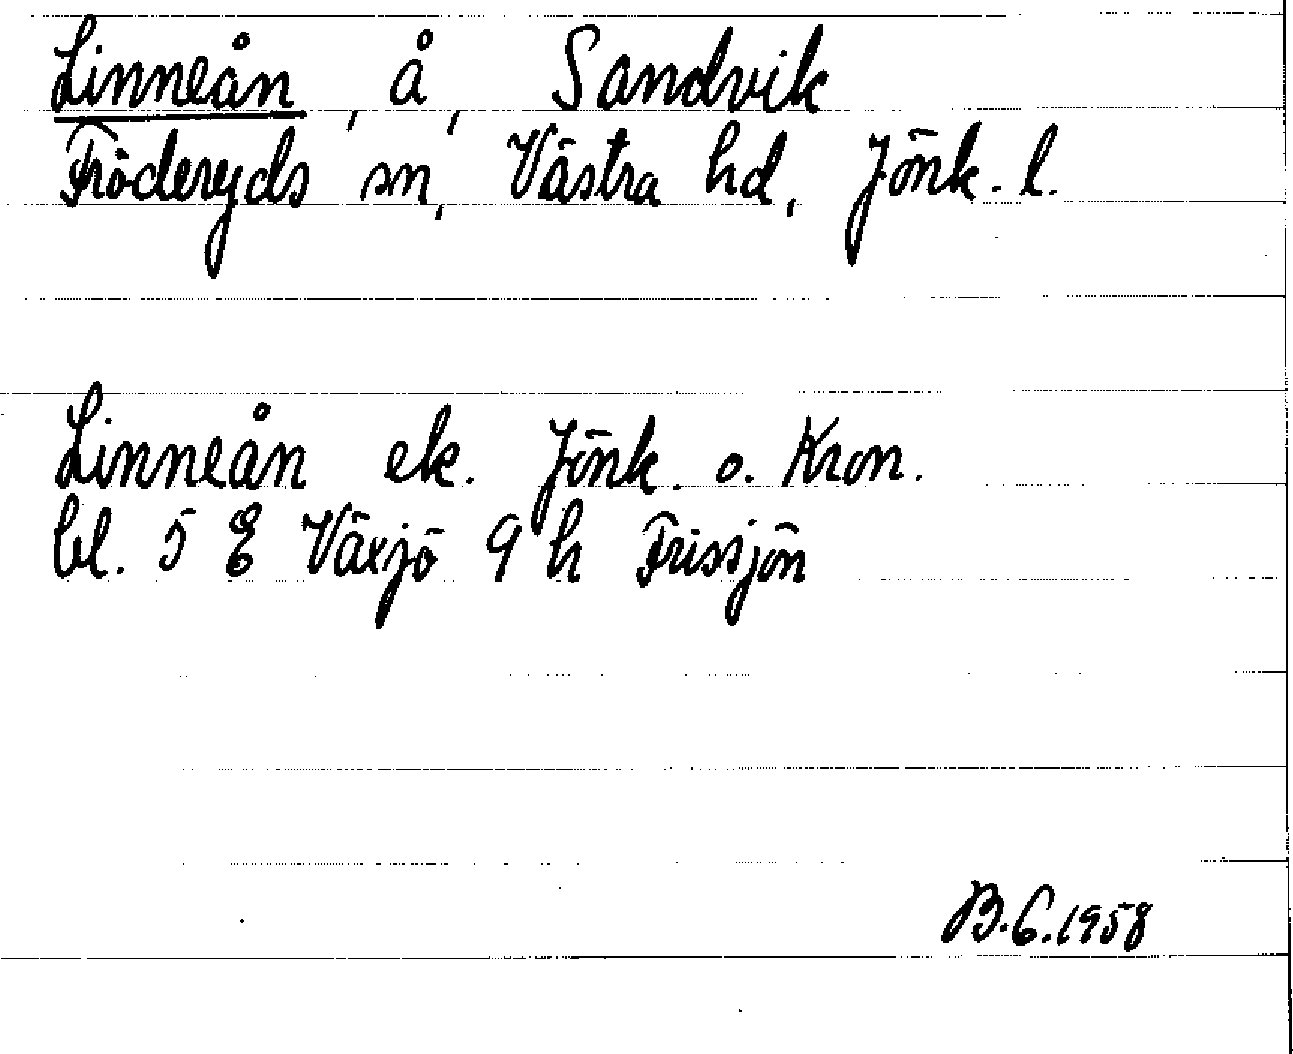 Linneån, å, Sandvik
Fröderyds sn, Västra hd, Jönk. l.
Linneån ek. Jönk. o. Kron.
bl. 5 E Växjö 9 h Frissjön
B.G.1958